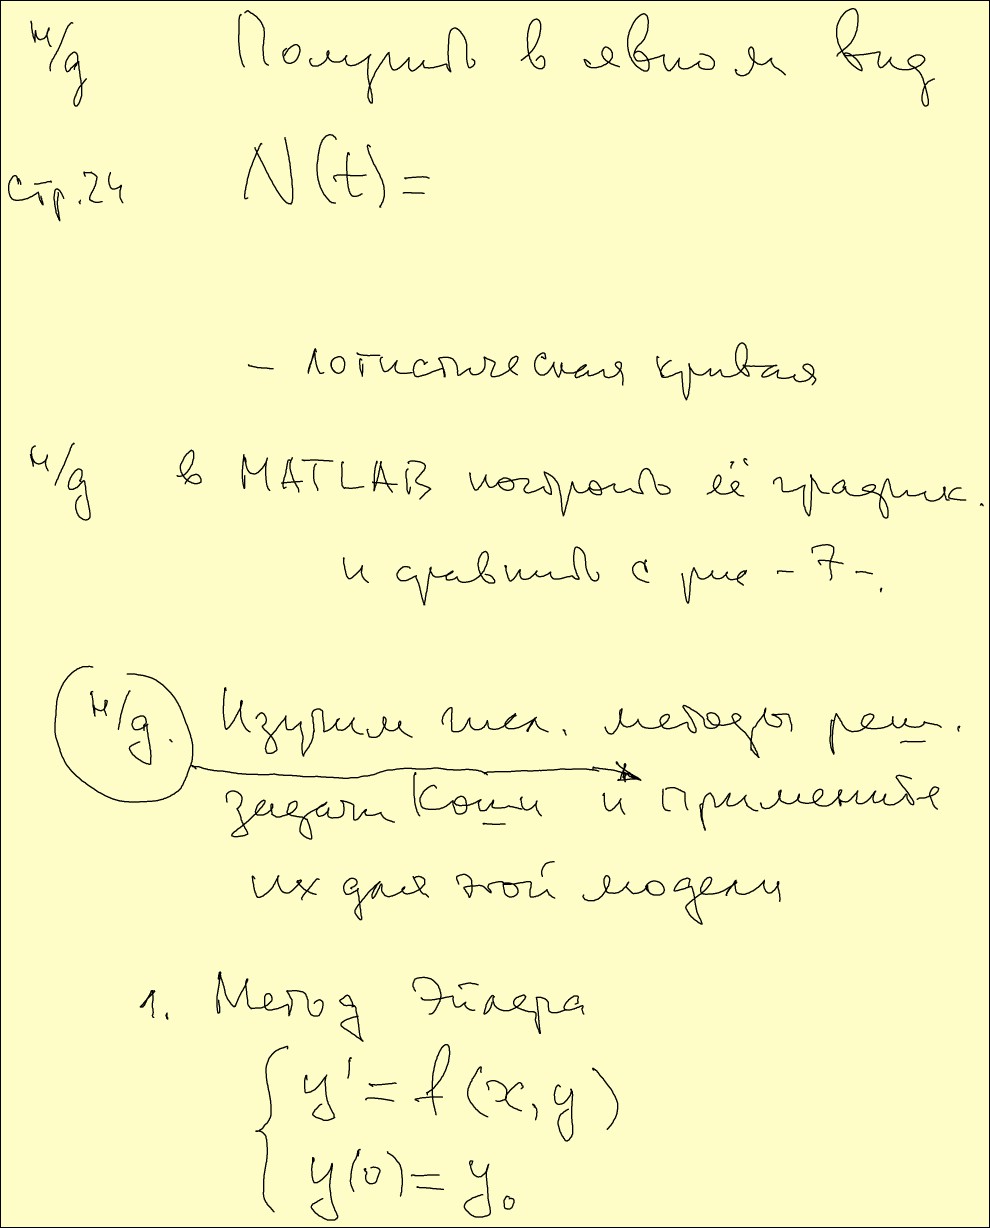 н/д Получить в явном вид
стр.24 N(t) =
- логистическая кривая
н/д в MATLAB построить её график.
и сравнить с рис - 7 -.
н/д. Изучим числ. методы реш.
задачи Коши и примените
их для этой модели
1. Метод Эйлера
y' = f(x, y)
y(0) = y₀